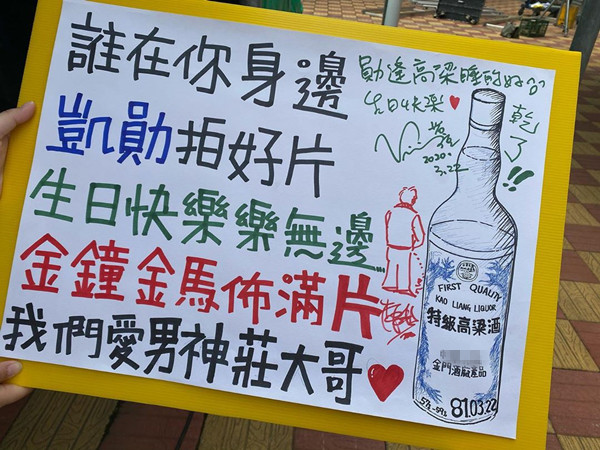 誰在你身邊
凱勛拍好片
生日快樂樂無邊...
金鐘金馬佈滿片
我們愛男神莊大哥
勛逢高粱睡的好
生日快樂
2020.
3.22
乾了!!
FIRST QUALITY
KAO LIANG LIQUOR
特級高粱酒
金門酒廠產品
81.03.22